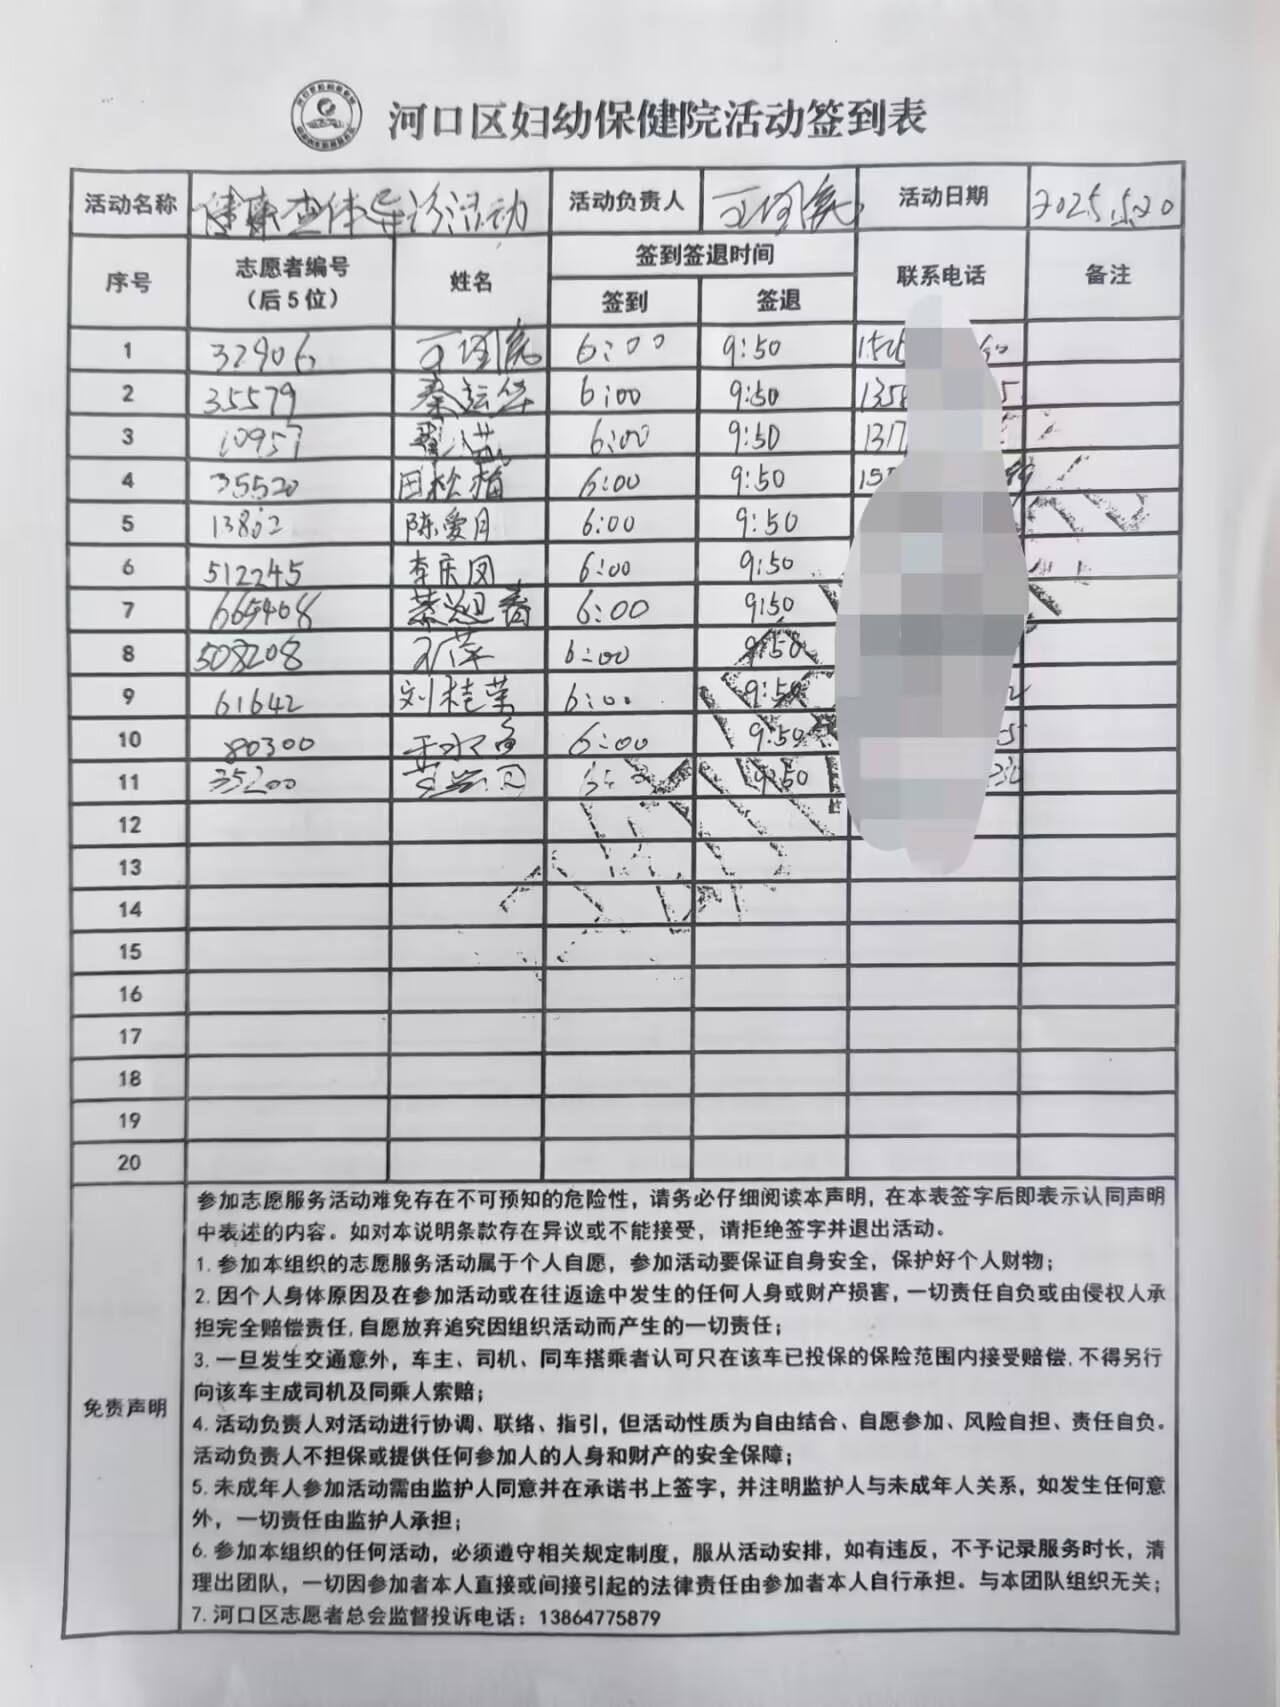 河口区妇幼保健院活动签到表
活动名称 健康查体导诊活动 活动负责人 活动日期 2025.5.20
序号 志愿者编号（后5位） 姓名 签到签退时间 联系电话 备注
签到 签退
1 32906 6:00 9:50
2 35579 秦运华 6:00 9:50 1358
3 10957 6:00 9:50 1317
4 35520 田松梅 6:00 9:50
5 13802 陈爱月 6:00 9:50
6 512245 李庆凤 6:00 9:50
7 665408 6:00 9:50
8 508208 6:00 9:50
9 61642 刘桂荣 6:00 9:50
10 80300 6:00 9:50
11 35200 9:50
12
13
14
15
16
17
18
19
20
免责声明
参加志愿服务活动难免存在不可预知的危险性，请务必仔细阅读本声明，在本表签字后即表示认同声明
中表述的内容。如对本说明条款存在异议或不能接受，请拒绝签字并退出活动。
1.参加本组织的志愿服务活动属于个人自愿，参加活动要保证自身安全，保护好个人财物；
2.因个人身体原因及在参加活动或在往返途中发生的任何人身或财产损害，一切责任自负或由侵权人承
担完全赔偿责任,自愿放弃追究因组织活动而产生的一切责任；
3.一旦发生交通意外，车主、司机、同车搭乘者认可只在该车已投保的保险范围内接受赔偿,不得另行
向该车主成司机及同乘人索赔；
4.活动负责人对活动进行协调、联络、指引，但活动性质为自由结合、自愿参加、风险自担、责任自负。
活动负责人不担保或提供任何参加人的人身和财产的安全保障；
5.未成年人参加活动需由监护人同意并在承诺书上签字，并注明监护人与未成年人关系，如发生任何意
外，一切责任由监护人承担；
6.参加本组织的任何活动，必须遵守相关规定制度，服从活动安排，如有违反，不予记录服务时长，清
理出团队，一切因参加者本人直接或间接引起的法律责任由参加者本人自行承担。与本团队组织无关；
7.河口区志愿者总会监督投诉电话：13864775879